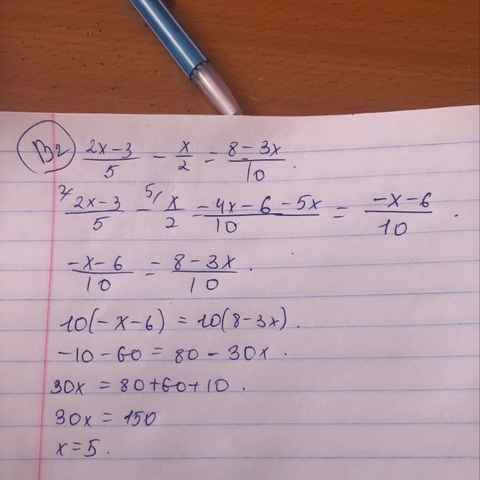 B2 (2x-3)/5 - x/2 = (8-3x)/10.
2/ (2x-3)/5 - 5/ x/2 = (4x-6-5x)/10 = (-x-6)/10.
(-x-6)/10 = (8-3x)/10.
10(-x-6) = 10(8-3x).
-10-60 = 80-30x.
30x = 80+60+10.
30x = 150
x=5.